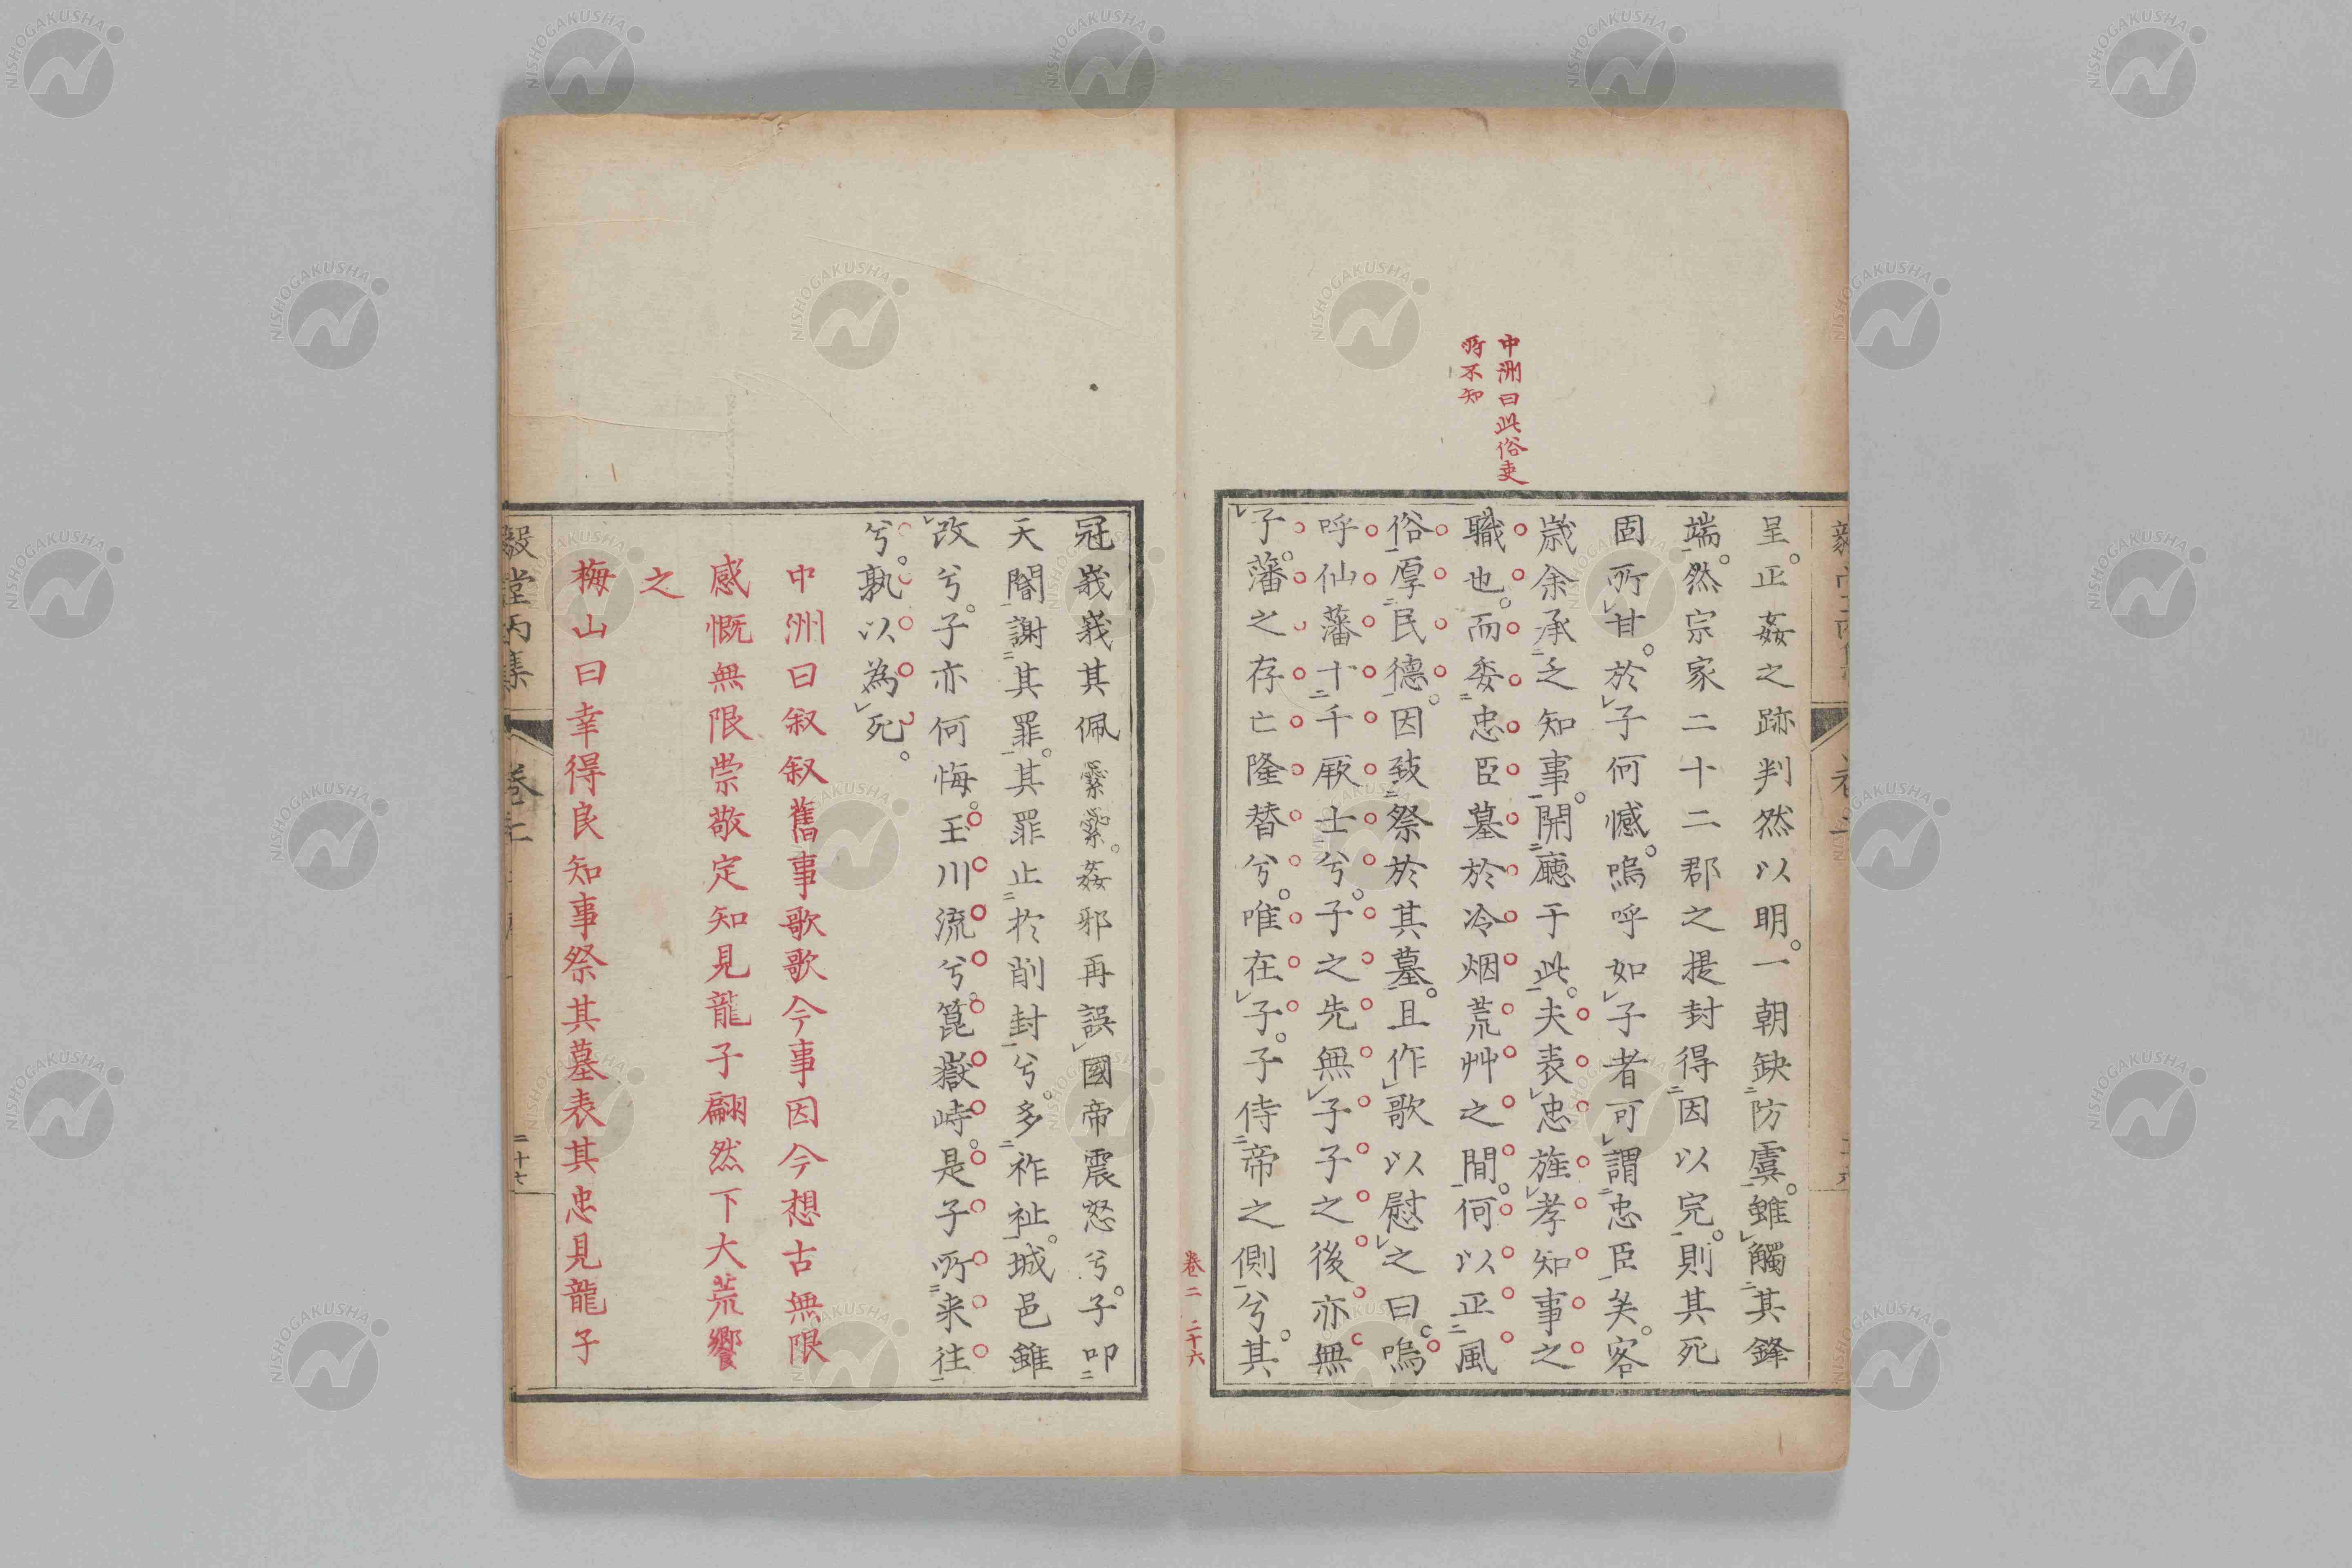 中洲曰此俗吏
所不知
呈。正姦之跡判然以明。一朝缺防虞。雖觸其鋒
端。然宗家二十二郡之提封得因以完。則其死
固所甘。於子何憾。嗚呼如子者可謂忠臣矣。客
歳余承乏知事。開廳于此。夫表忠旌孝知事之
職也。而委忠臣墓於冷烟荒艸之間。何以正風
俗厚民德。因致祭於其墓。且作歌以慰之曰。嗚
呼仙藩十千厥士兮。子之先無子子之後亦無
子。藩之存亡隆替兮。唯在子。子侍帝之側兮。其
卷二 二十六
冠峩峩其佩纍纍。姦邪再誤國帝震怒兮。子叩
天閽謝其罪。其罪止於削封兮。多祚祉。城邑雖
改兮。子亦何悔。玉川流兮。篦嶽峙。是子所来往
兮。孰以為死。
中洲曰叙叙舊事歌歌今事因今想古無限
感慨無限崇敬定知見龍子翩然下大荒饗
之
梅山曰幸得良知事祭其墓表其忠見龍子
毅堂丙集
卷二
二十七